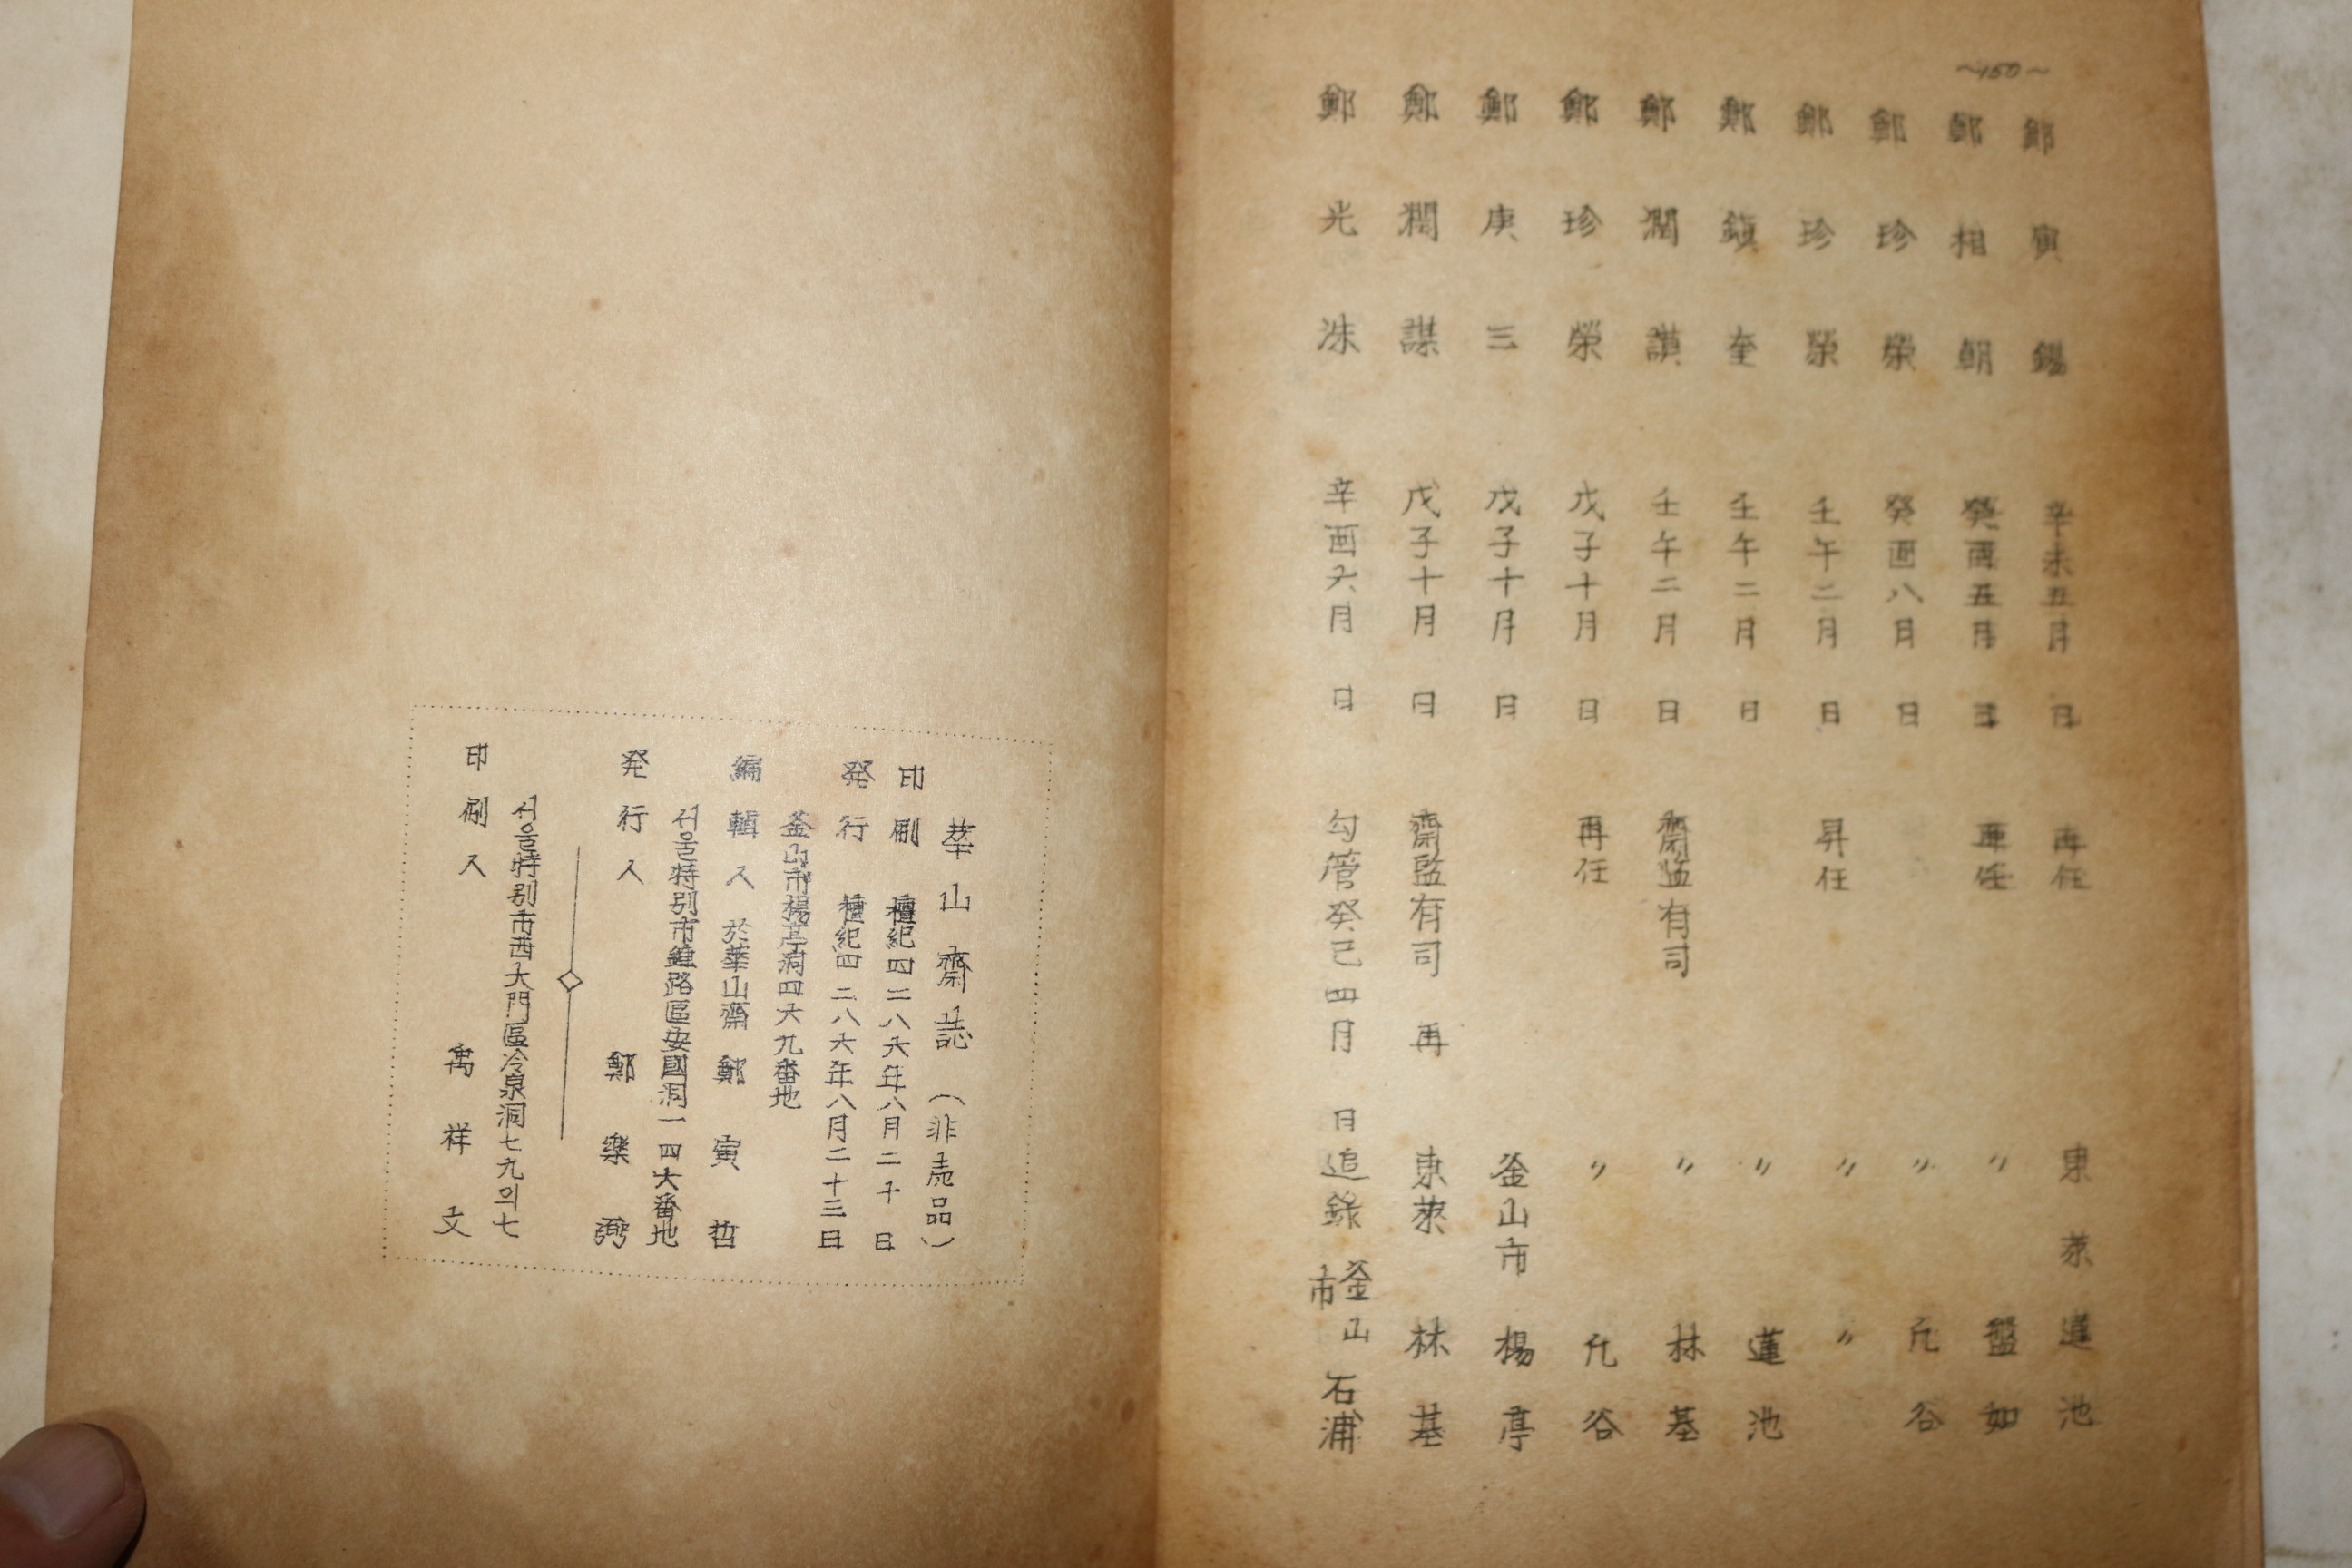 ~150~
鄭寅錫 辛未五月 日 再任 東萊蓮池
鄭相朝 癸酉五月 日 再任 〃 盤如
鄭珍榮 癸酉八月 日 〃 凡谷
鄭珍榮 壬午二月 日 昇任 〃 〃
鄭鎮奎 壬午二月 日 〃 蓮池
鄭潤讃 壬午二月 日 齋監有司 〃 林基
鄭珍榮 戊子十月 日 再任 〃 凡谷
鄭庚三 戊子十月 日 釜山市 楊亭
鄭潤謀 戊子十月 日 齋監有司 再 東萊 林基
鄭光洙 辛酉六月 日 勾管癸巳四月 日追錄 釜山市 石浦
華山齋誌 (非売品)
印刷 檀紀四二八六年八月二十日
発行 檀紀四二八六年八月二十三日
釜山市楊亭洞四六九番地
編輯人 於華山齋 鄭寅哲
서울特别市鍾路區安國洞一四六番地
発行人 鄭樂弼
서울特别市西大門區冷泉洞七九의七
印刷人 禹祥文